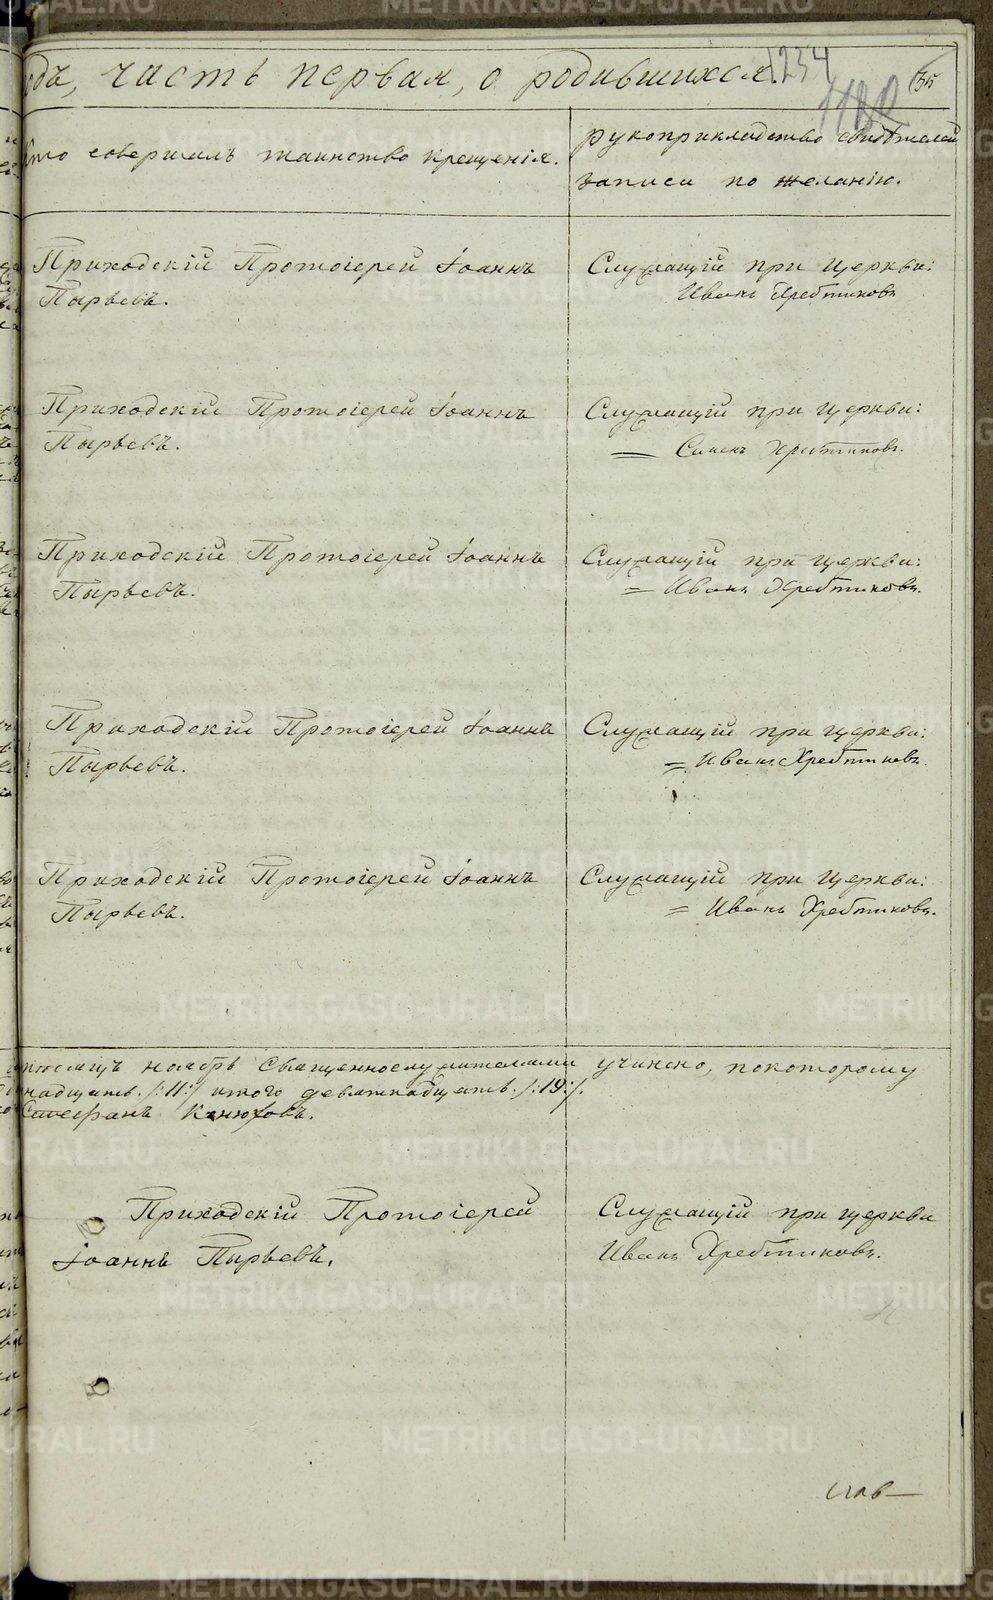 одъ, часть первая, о родившихся.
1234
1180
35
Кто совершалъ таинство крещенія.
рукоприкладство свидѣтелей
записи по желанію.
Приходскій Протоіерей Іоаннъ
Пырьевъ.
Служащій при Церкви:
Иванъ Хребтиковъ
Приходскій Протоіерей Іоаннъ
Пырьевъ.
Служащій при церкви:
= Хребтиковъ.
Приходскій Протоіерей Іоаннъ
Пырьевъ.
Служащій при церкви:
= Иванъ Хребтиковъ.
Приходскій Протоіерей Іоаннъ
Пырьевъ.
Служащій при церкви:
= Иванъ Хребтиковъ.
Приходскій Протоіерей Іоаннъ
Пырьевъ.
Служащій при Церкви:
= Иванъ Хребтиковъ.
ноябрь Священнослужителями учинено, покоторому
надцать /:11:/ итого девятнадцать /:19:/.
Стефанъ Конюховъ.
Приходскій Протоіерей
Іоаннъ Пырьевъ.
Служащій при церкви
Иванъ Хребтиковъ.
METRIKI.GASO-URAL.RU